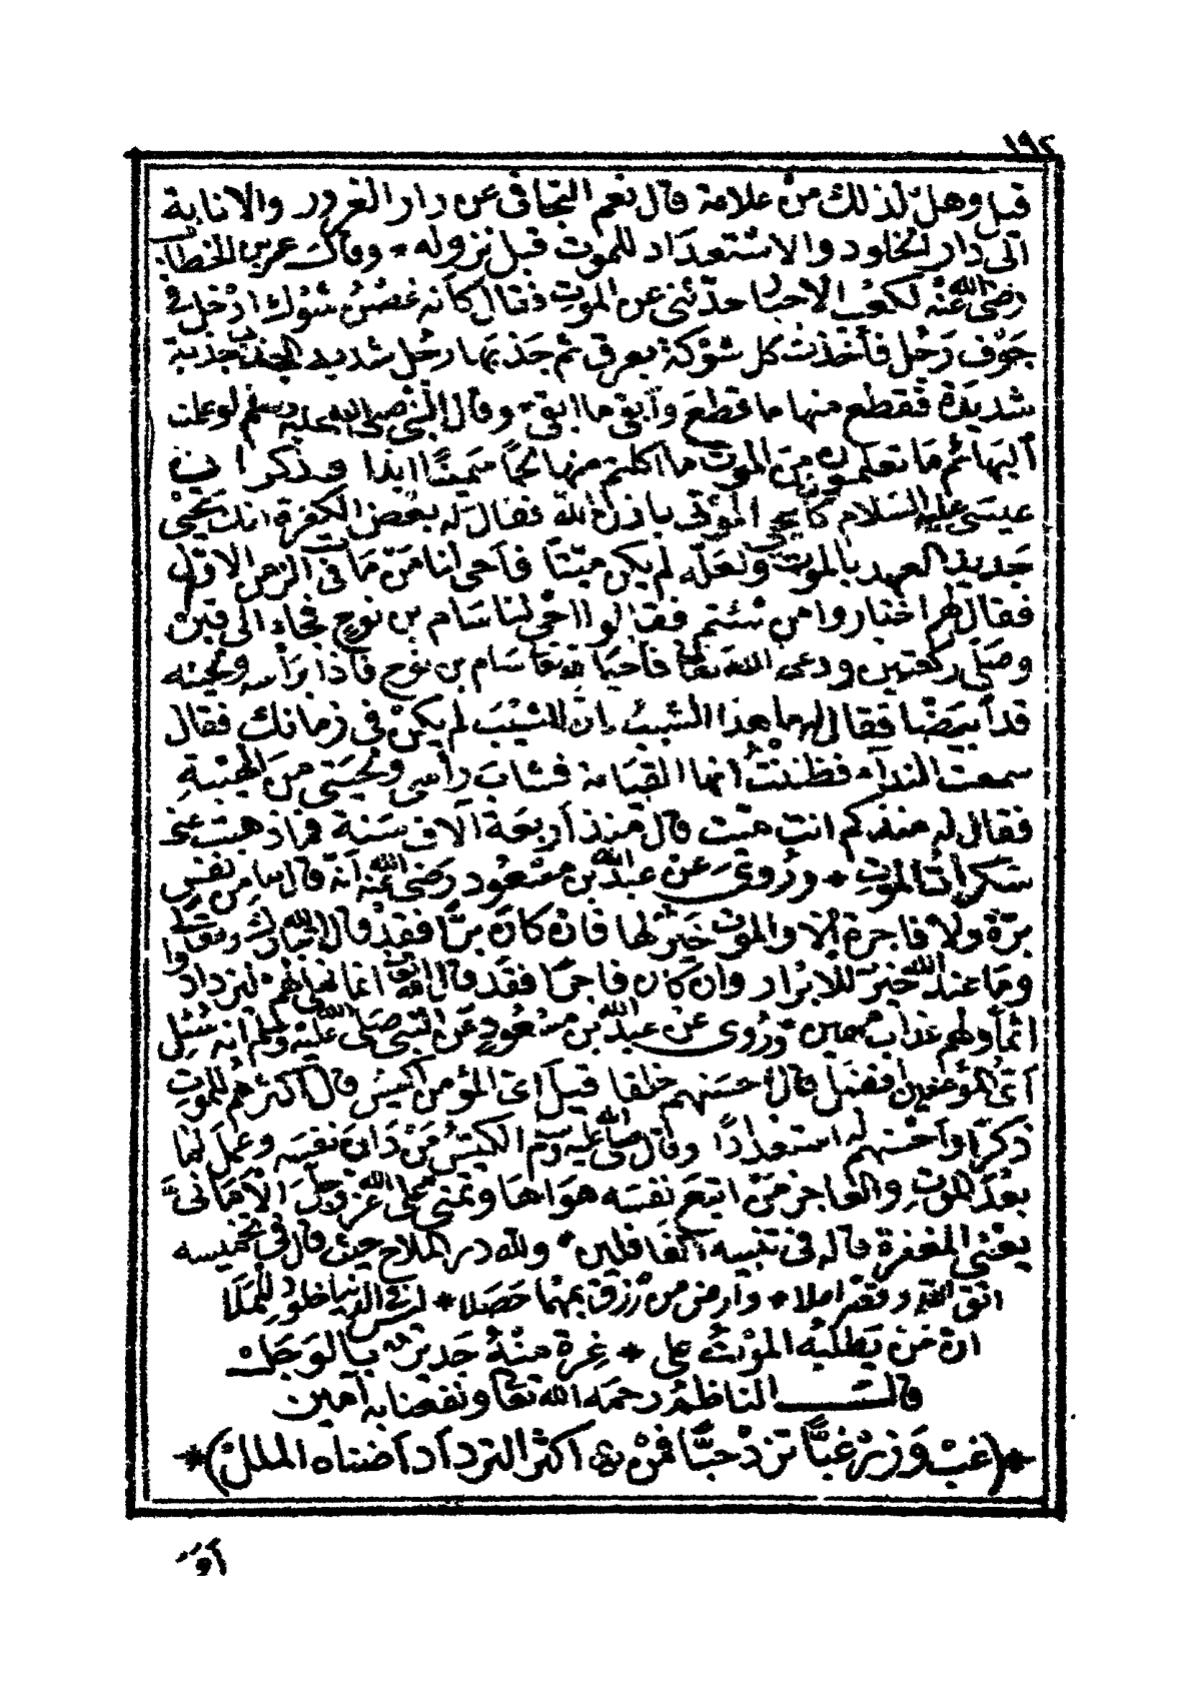 ١٩٢
قيل وهل لذلك من علامة قال نعم التجافى عن دار الغرور والانابة
الى دار الخلود والاستعداد للموت قبل نزوله * وقال عمر بن الخطاب
رضى الله عنه لكعب الاحبار حدثنى عن الموت فقال كأنه غصن شوك ادخل فى
جوف رجل فأخذت كل شوكة بعرق ثم جذبها رجل شديد الجذب جذبة
شديدة فقطع منها ما قطع وأبقى ما ابقى * وقال النبى صلى الله عليه وسلم لو علمت
البهائم ما تعلمون من الموت ما اكلتم منها لحما سمينا ابدا وذكر ان
عيسى عليه السلام كان يحيى الموتى باذن الله فقال له بعض الكفرة انك تحيى
جديد العهد بالموت ولعله لم يكن ميتا فأحى لنا من مات فى الزمن الاول
فقال لهم اختاروا من شئتم فقالوا احى لنا سام بن نوح فجاء الى قبره
وصلى ركعتين ودعى الله تعالى فأحيا لله تعالى سام بن نوح فاذا رأسه ولحيته
قد أبيضا فقال له ما هذا الشيب ان الشيب لم يكن فى زمانك فقال
سمعت النداء فظننت انها القيامة فشاب رأسى ولحيتى من الهيبة
فقال له منذ كم انت ميت قال منذ أربعة آلاف سنة فما ذهبت عنى
سكرات الموت * وروى عن عبد الله بن مسعود رضى الله عنه أنه قال ما من نفس
برة ولا فاجرة ألا والموت خير لها فان كان برا فقد قال الله تبارك وتعالى
وما عند الله خير للابرار وان كان فاجرا فقد قال الله تعالى انما نملى لهم ليزدادوا
اثما ولهم عذاب مهين * وروى عن عبد الله بن مسعود عن النبى صلى الله عليه وسلم انه سئل
أى المؤمنين أفضل قال احسنهم خلقا قيل اى المؤمن أكيس قال أكثرهم للموت
ذكرا وأحسنهم له استعدادا وقال صلى الله عليه وسلم الكيس من دان نفسه وعمل لما
بعد الموت والعاجز من اتبع نفسه هواها وتمنى على الله عز وجل الأمانى
يعنى المغفرة قاله فى تنبيه الغافلين * ولله در الملاح حيث قال فى تخميسه
اتق الله وقصر املا * وارض من رزق بمهما حصلا * ليس فى الدنيا خلود للملا
ان من يطلبه الموت على * غرة منه جدير بالوجل
قال الناظم رحمه الله تعالى ونفعنا به آمين
*(غب وزر غبا تزد حبا فمن * أكثر الترداد أضناه الملل)*
أو